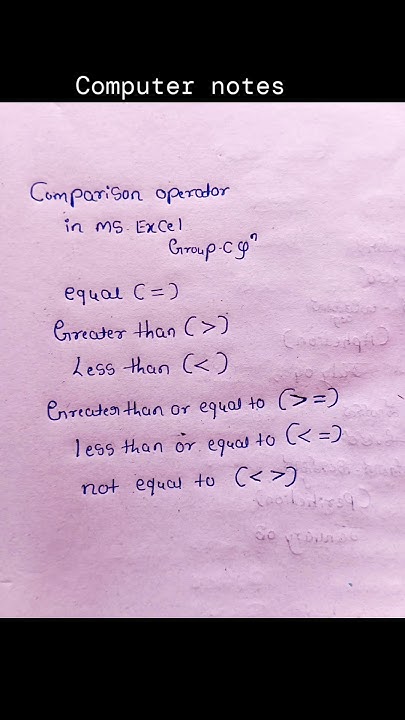 Computer notes
Comparison operator
in MS. Excel
Group-C
equal (=)
Greater than (>)
Less than (<)
Greater than or equal to (>=)
less than or equal to (<=)
not equal to (<>)